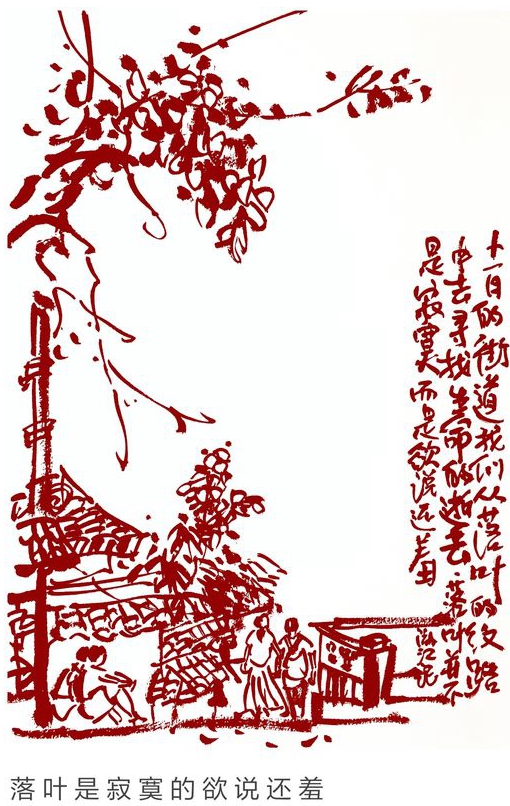 十一月的街道我们从落叶的纹路
中去寻找生命的逝去落叶并不
是寂寞而是欲说还羞
落叶是寂寞的欲说还羞